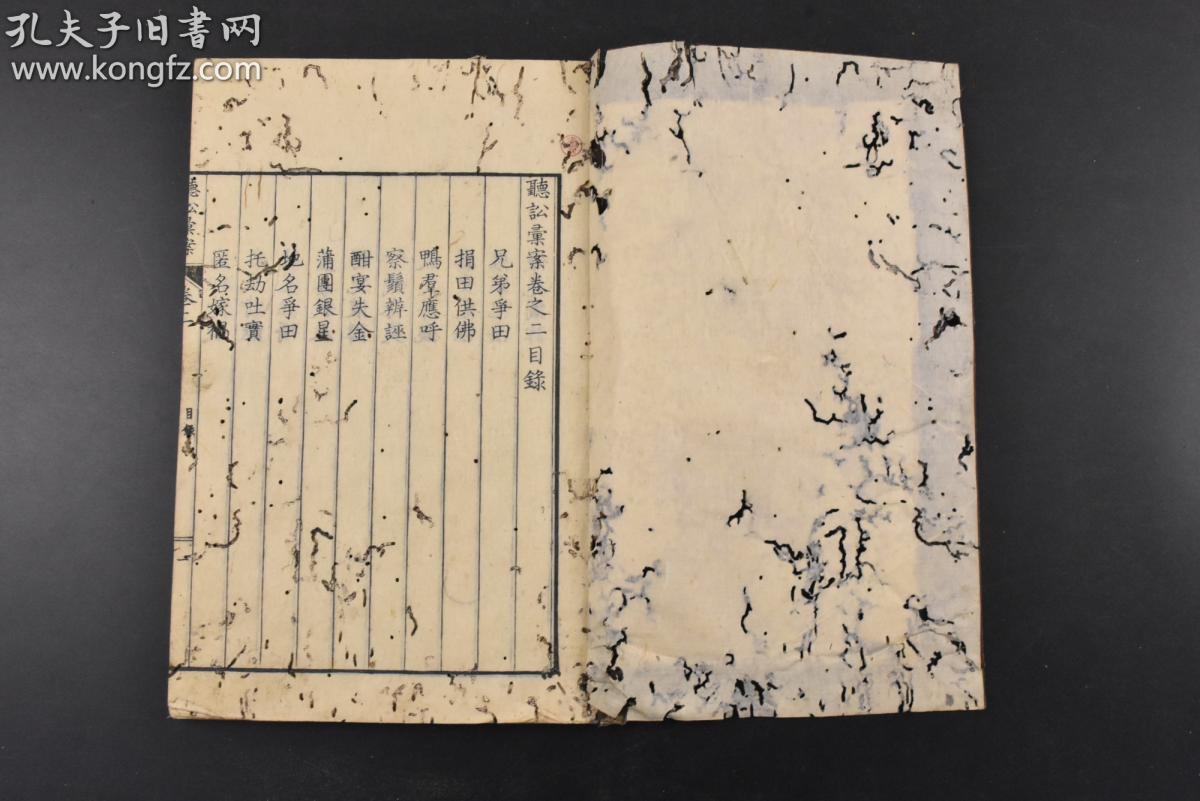 孔夫子旧书网
www.kongfz.com
聽訟彙案卷之二目錄
兄弟爭田
捐田供佛
鴨羣應呼
察鬚辨誣
酣宴失金
蒲團銀星
名爭田
托劫吐實
匿名嫁禍
聽訟彙案
卷二
目錄